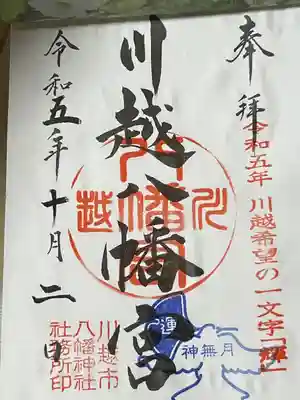 奉拝
令和五年 川越希望の一文字「輝」
川越八幡宮
川越八幡宮
運
神無月
令和五年十月二日
川越市
八幡神社
社務所印